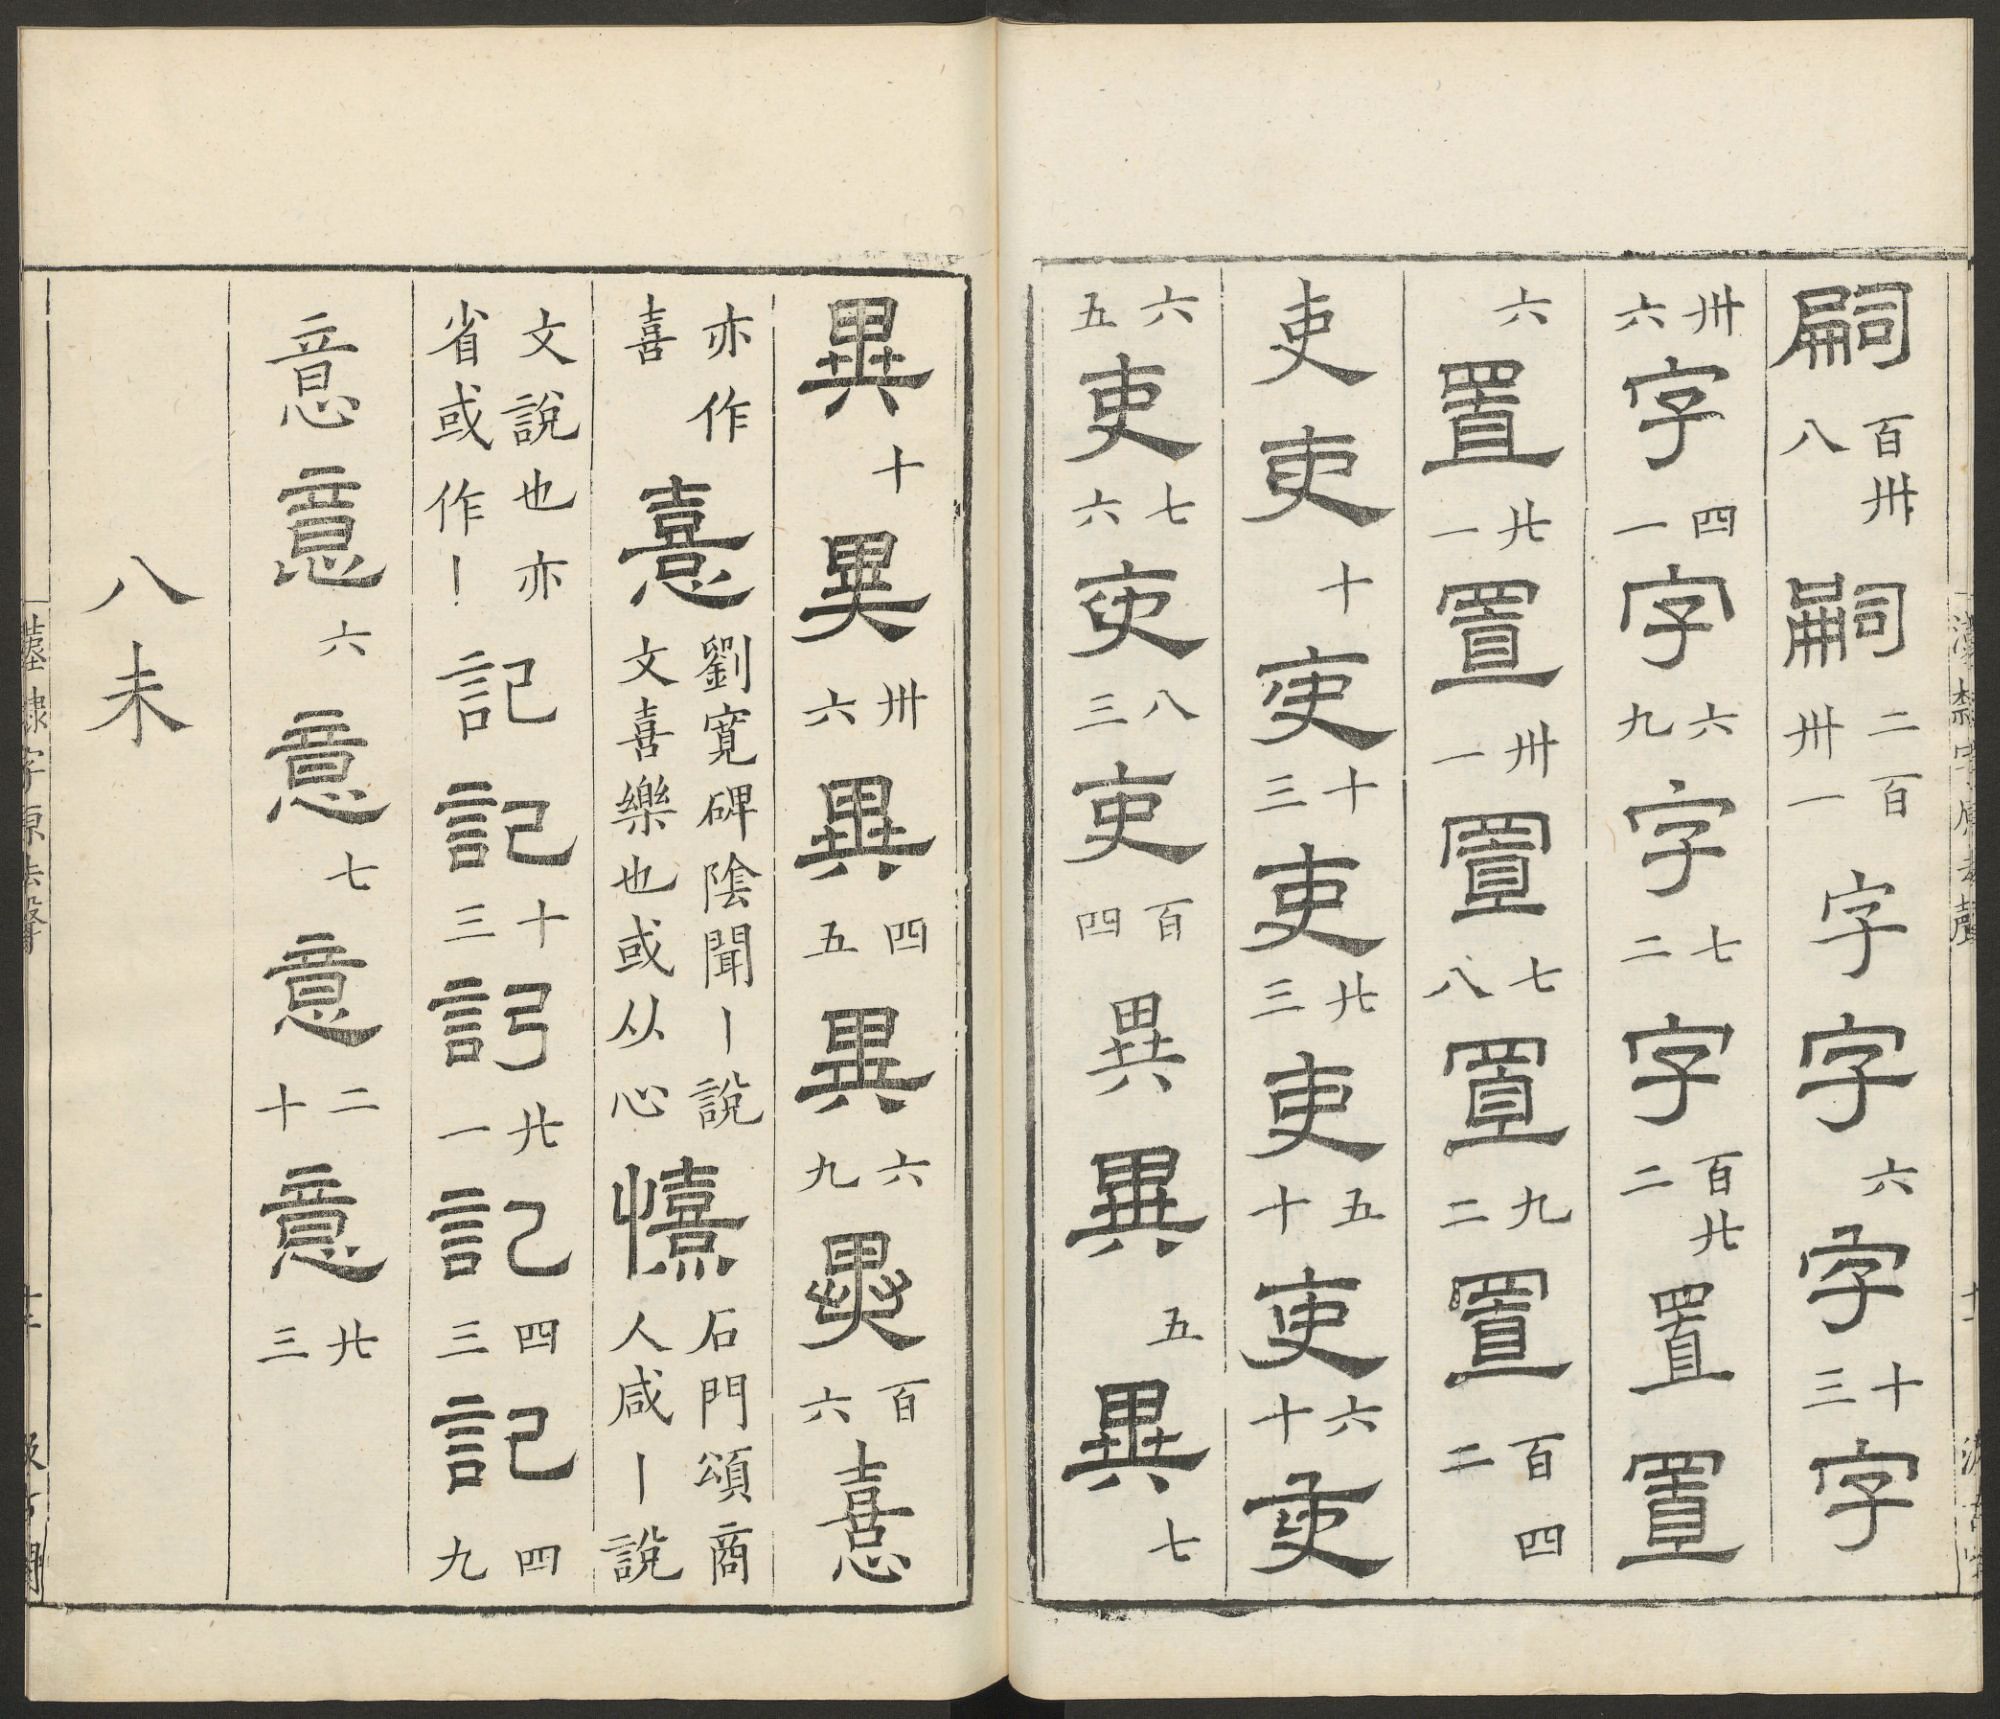 嗣百卅八嗣二百卅一字字六字十三字
卅六字四一字六九字七二字百廿二置置
六置廿一置卅一置七八置九二置百四二
吏吏十吏十三吏廿三吏五十吏六十吏
六五吏七六吏八三吏百四異異五異七
異十異卅六異四五異六九異百六憙
亦作喜憙劉寬碑陰聞丨說文喜樂也或从心憘石門頌商人咸丨說
文說也亦省或作丨記記十三記廿一記四三記四九
意意六意七意二十意廿三
八未